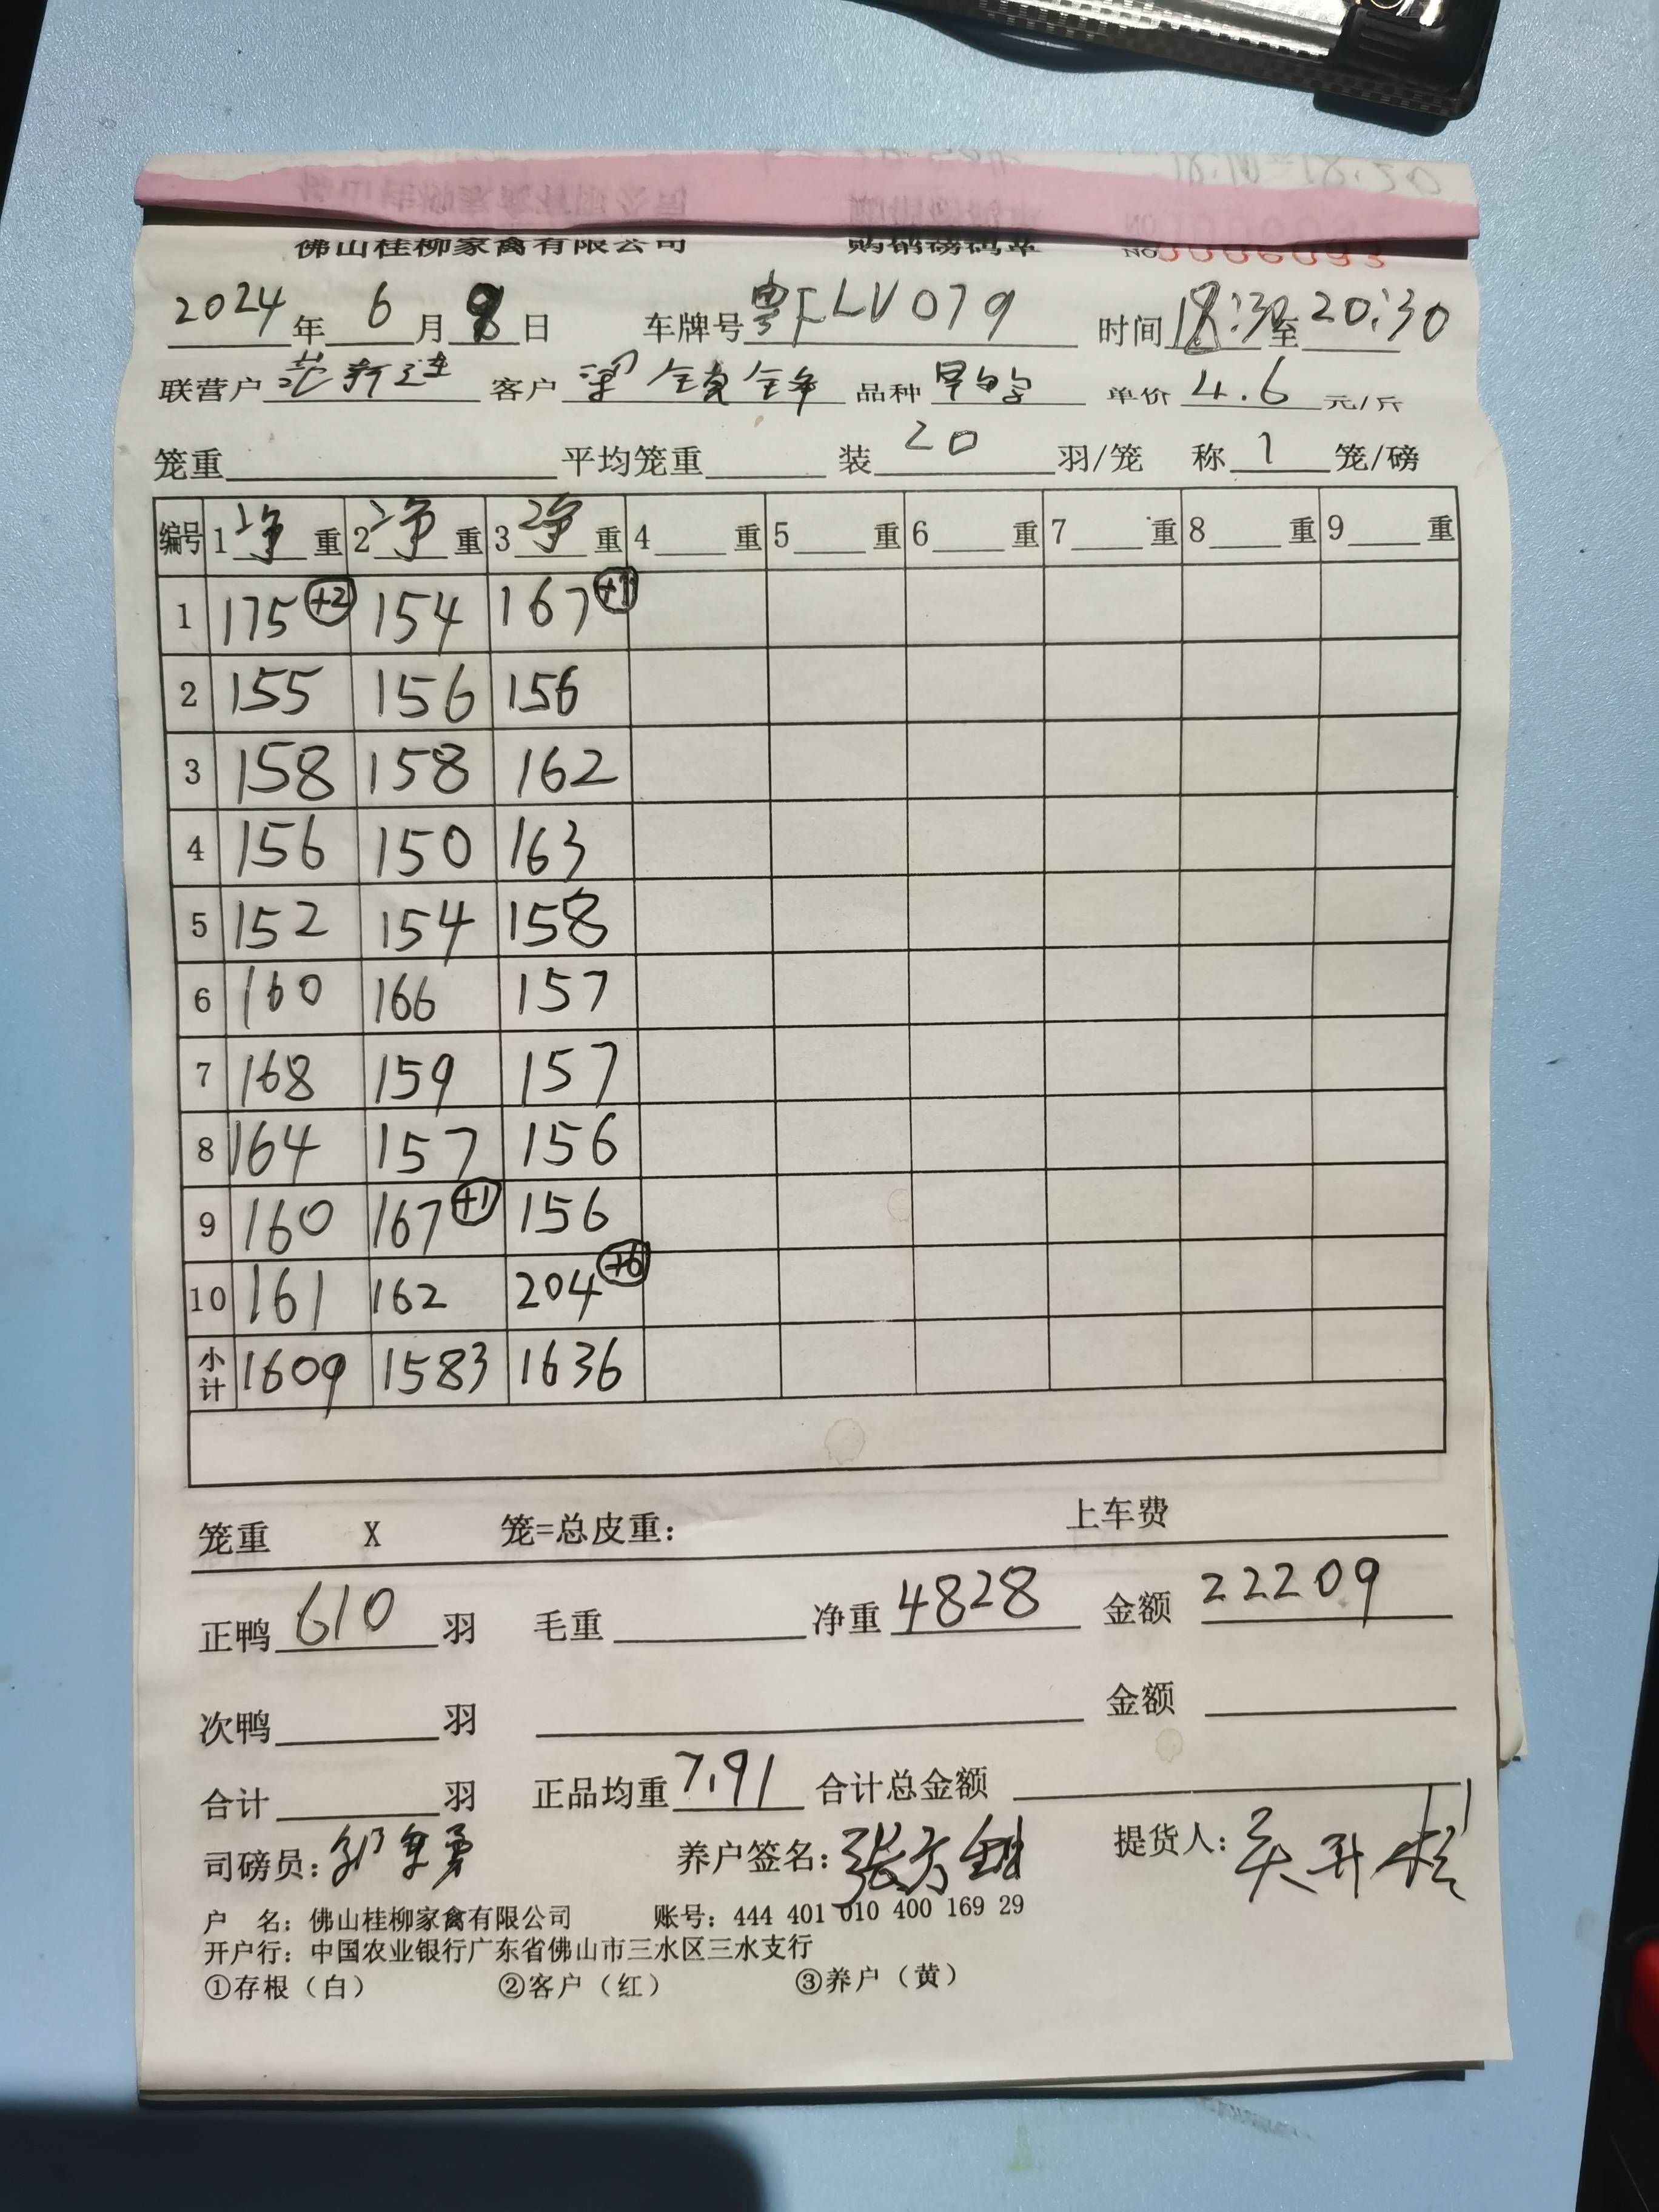 佛山桂柳家禽有限公司 购销磅码单 NO
2024年 6月 8日 车牌号 粤FLV079 时间 18:30至20:30
联营户 范新连 客户 品种 单价 4.6 元/斤
笼重 平均笼重 装 20 羽/笼 称 1 笼/磅
编号 1 净 重 2 净 重 3 净 重 4 重 5 重 6 重 7 重 8 重 9 重
1 175 +2 154 167 +1
2 155 156 156
3 158 158 162
4 156 150 163
5 152 154 158
6 160 166 157
7 168 159 157
8 164 157 156
9 160 167 +1 156
10 161 162 204 +6
小计 1609 1583 1636
笼重 X 笼=总皮重: 上车费
正鸭 610 羽 毛重 净重 4828 金额 22209
次鸭 羽 金额
合计 羽 正品均重 7.91 合计总金额
司磅员: 养户签名: 提货人:
户 名: 佛山桂柳家禽有限公司 账号: 444 401 010 400 169 29
开户行: 中国农业银行广东省佛山市三水区三水支行
①存根(白) ②客户(红) ③养户(黄)